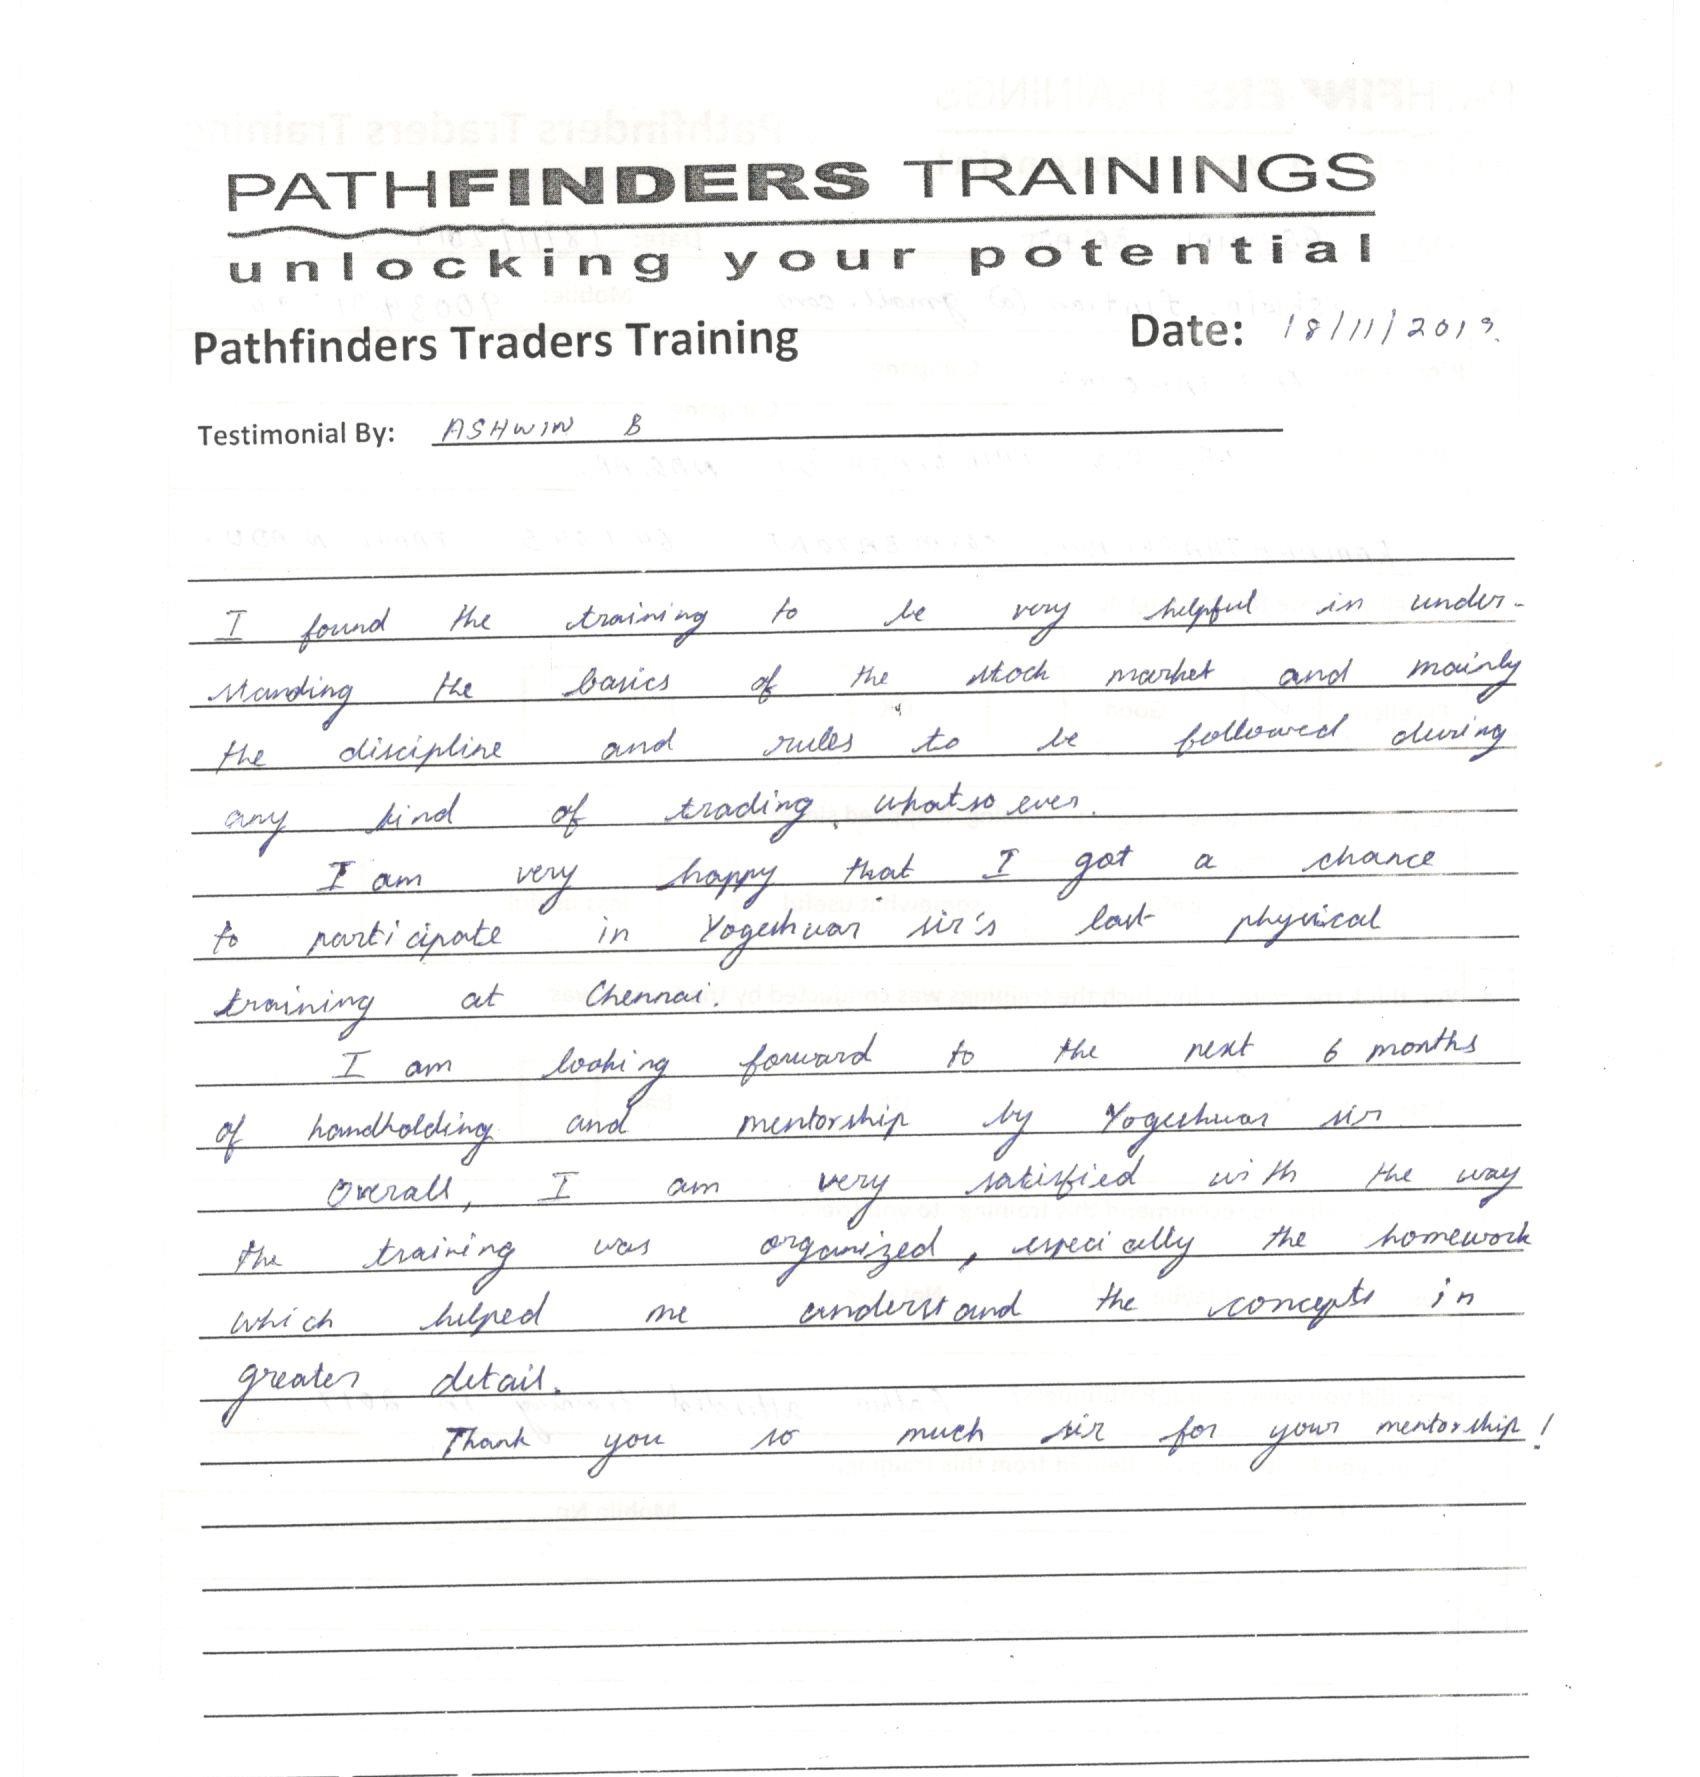 PATHFINDERS TRAININGS
unlocking your potential
Pathfinders Traders Training Date: 18/11/2019.
Testimonial By: ASHWIN B
I found the training to be very helpful in under-
standing the basics of the stock market and mainly
the discipline and rules to be followed during
any kind of trading whatsoever.
I am very happy that I got a chance
to participate in Yogeshwar sir's last physical
training at Chennai.
I am looking forward to the next 6 months
of handholding and mentorship by Yogeshwar sir
Overall, I am very satisfied with the way
the training was organized, especially the homework
which helped me understand the concepts in
greater detail.
Thank you so much sir for your mentorship!